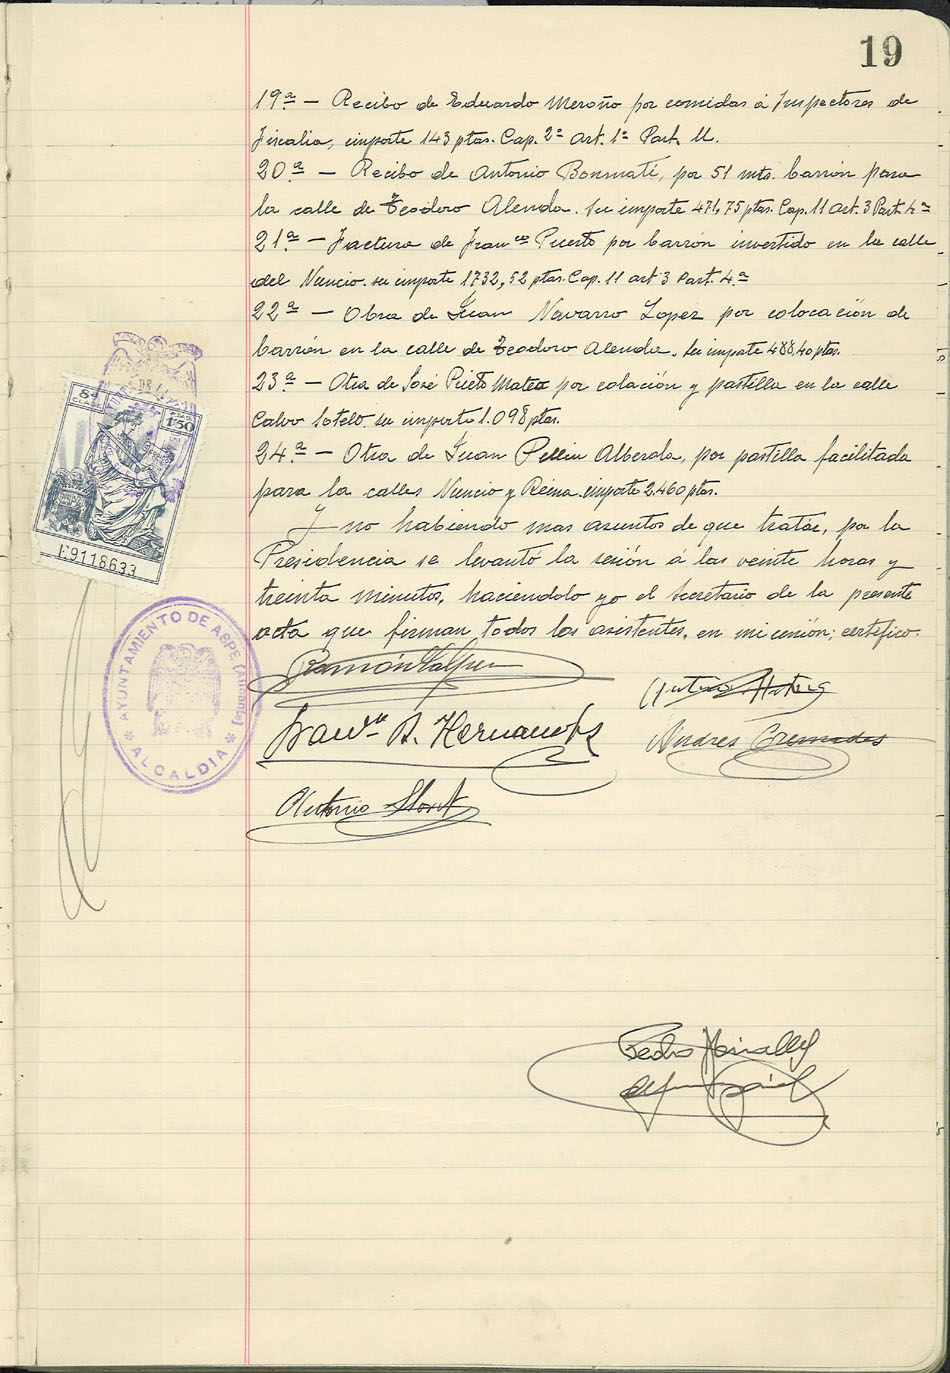 19
19ª — Recibo de Eduardo Meroño por comidas a Inspectores de
Fiscalia, importe 143 ptas. Cap. 2º art. 1º Part. 11.
20ª — Recibo de Antonio Bonmati, por 51 mts. barrón para
la calle de Teodoro Alenda. su importe 471,75 ptas. Cap. 11 art. 3 Part. 4ª
21ª — Factura de Franco Puerto por barrón invertido en la calle
del Nuncio. su importe 1732,52 ptas. Cap. 11 art 3 Part. 4ª
22ª — Obra de Juan Navarro Lopez por colocación de
barrón en la calle de Teodoro Alenda. su importe 488,40 ptas.
23ª — Otra de José Prieto Mateo por colación y pastilla en la calle
Calvo Sotelo. su importe 1.098 ptas.
24ª — Otra de Juan Pellin Alberola, por pastilla facilitada
para la calles Nuncio y Reina. importe 2.460 ptas.
Y no habiendo mas asuntos de que tratar, por la
Presidencia se levantó la sesión a las veinte horas y
treinta minutos, haciendolo yo el Secretario de la presente
acta que firman todos los asistentes, en mi cesión; certifico.
8ª CLASE
1'50
E9118633
AYUNTAMIENTO DE ASPE (Alicante)
ALCALDIA
Ramón
Antonio
Franco A. Hernandez
Andres Cremades
Antonio Lloret
Pedro